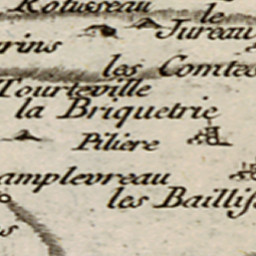 Rotusseau
le
Jureau
rins
les Comtes
Tourteville
la Briquetrie
Piliere
amplevreau
les Baillis
s